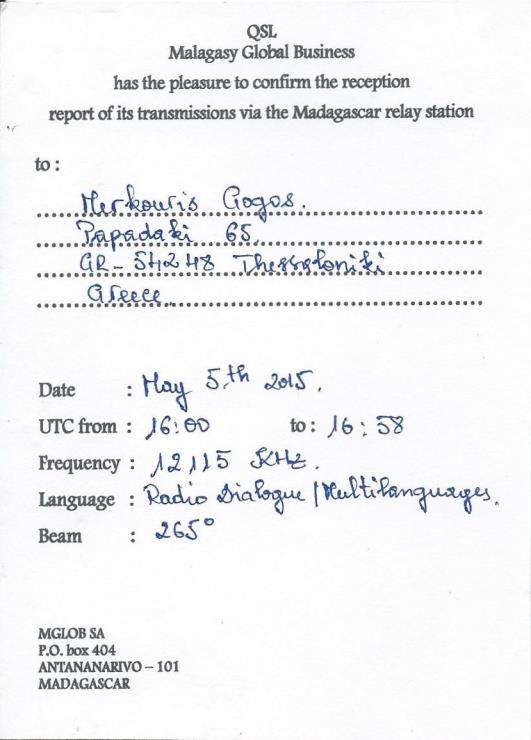 QSL
Malagasy Global Business
has the pleasure to confirm the reception
report of its transmissions via the Madagascar relay station
to :
Merkouris Gogos.
Papadaki 65,
GR-54248 Thessaloniki
Greece
Date : May 5.th 2015.
UTC from : 16:00 to : 16:58
Frequency : 12115 KHz.
Language : Radio Dialogue / Multilanguages.
Beam : 265°
MGLOB SA
P.O. box 404
ANTANANARIVO – 101
MADAGASCAR